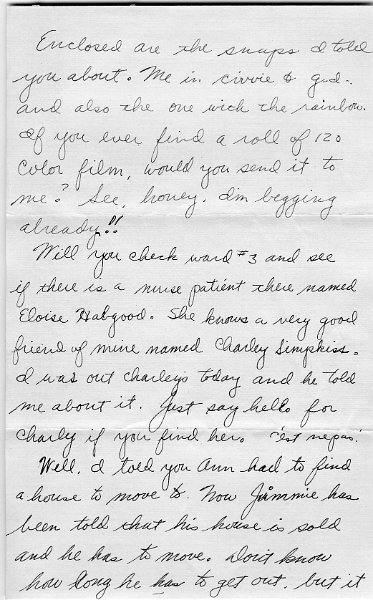 Enclosed are the snaps I told
you about. Me in civvie & gud.
and also the one with the rainbow.
If you ever find a roll of 120
color film, would you send it to
me? See, honey, I'm begging
already!!
Will you check ward #3 and see
if there is a nurse patient there named
Eloise Habgood. She knows a very good
friend of mine named Charley Simpkiss.
I was out Charleys today and he told
me about it. Just say hello for
Charly if you find her. c'est nepas.'
Well, I told you Ann had to find
a house to move to. Now Jimmie has
been told that his house is sold
and he has to move. Don't know
how long he has to get out, but it